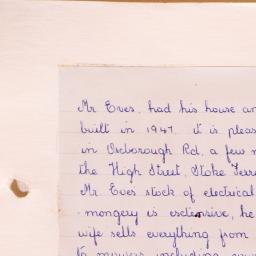 Mr Eves, had his house an
built in 1947. it is pleas
in Oxborough Rd. a few m
the High Street, Stoke Ferr
Mr. Eves stock of electrical
mongery is extensive, he
wife sells everything from
to mowers including